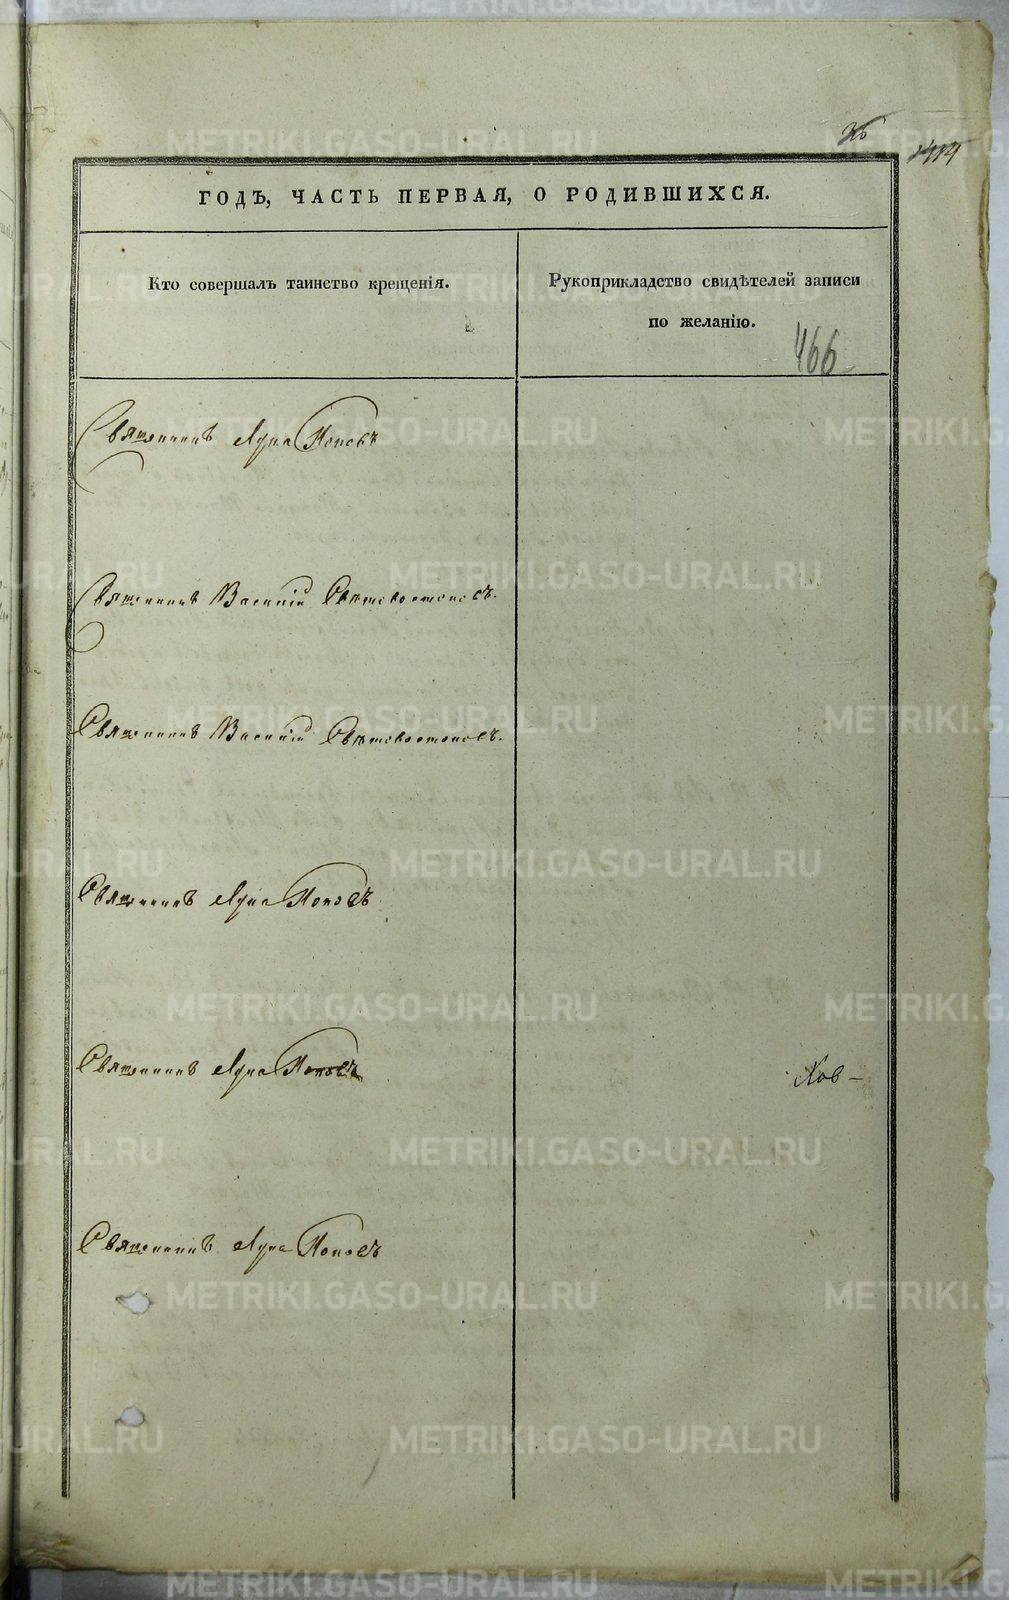 36
ГОДЪ, ЧАСТЬ ПЕРВАЯ, О РОДИВШИХСЯ.
Кто совершалъ таинство крещенія.
Рукоприкладство свидѣтелей записи
по желанію.
466
Священникъ Лука Поповъ
Священникъ Василій Свѣтовостоковъ.
Священникъ Василій Свѣтовостоковъ.
Священникъ Лука Поповъ
Священникъ Лука Поповъ
Священникъ Лука Поповъ
METRIKI.GASO-URAL.RU